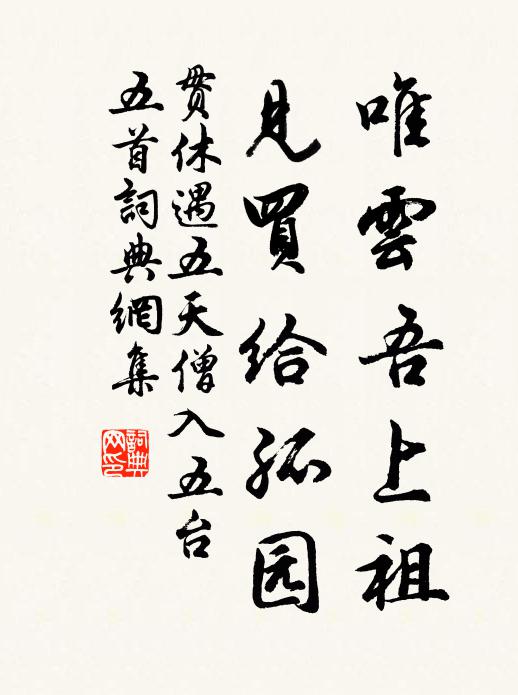 唯雲吾上祖
見買給孤园
贯休遇五天僧入五台
五首詞典網集
詞典
网印